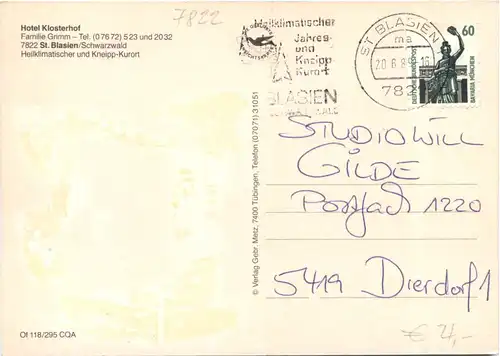 7822
Hotel Klosterhof
Familie Grimm – Tel. (07672) 523 und 2032
7822 St. Blasien/Schwarzwald
Heilklimatischer und Kneipp-Kurort
Heilklimatischer
Jahres-
und
Kneipp
Kurort
BLASIEN
ST BLASIEN
ma
20.6.89
782
60
DEUTSCHE BUNDESPOST
BAVARIA MÜNCHEN
STUDIO WILL
GILDE
Postfach 1220
5419 Dierdorf 1
© Verlag Gebr. Metz, 7400 Tübingen, Telefon (07071) 31051
Of 118/295 CQA